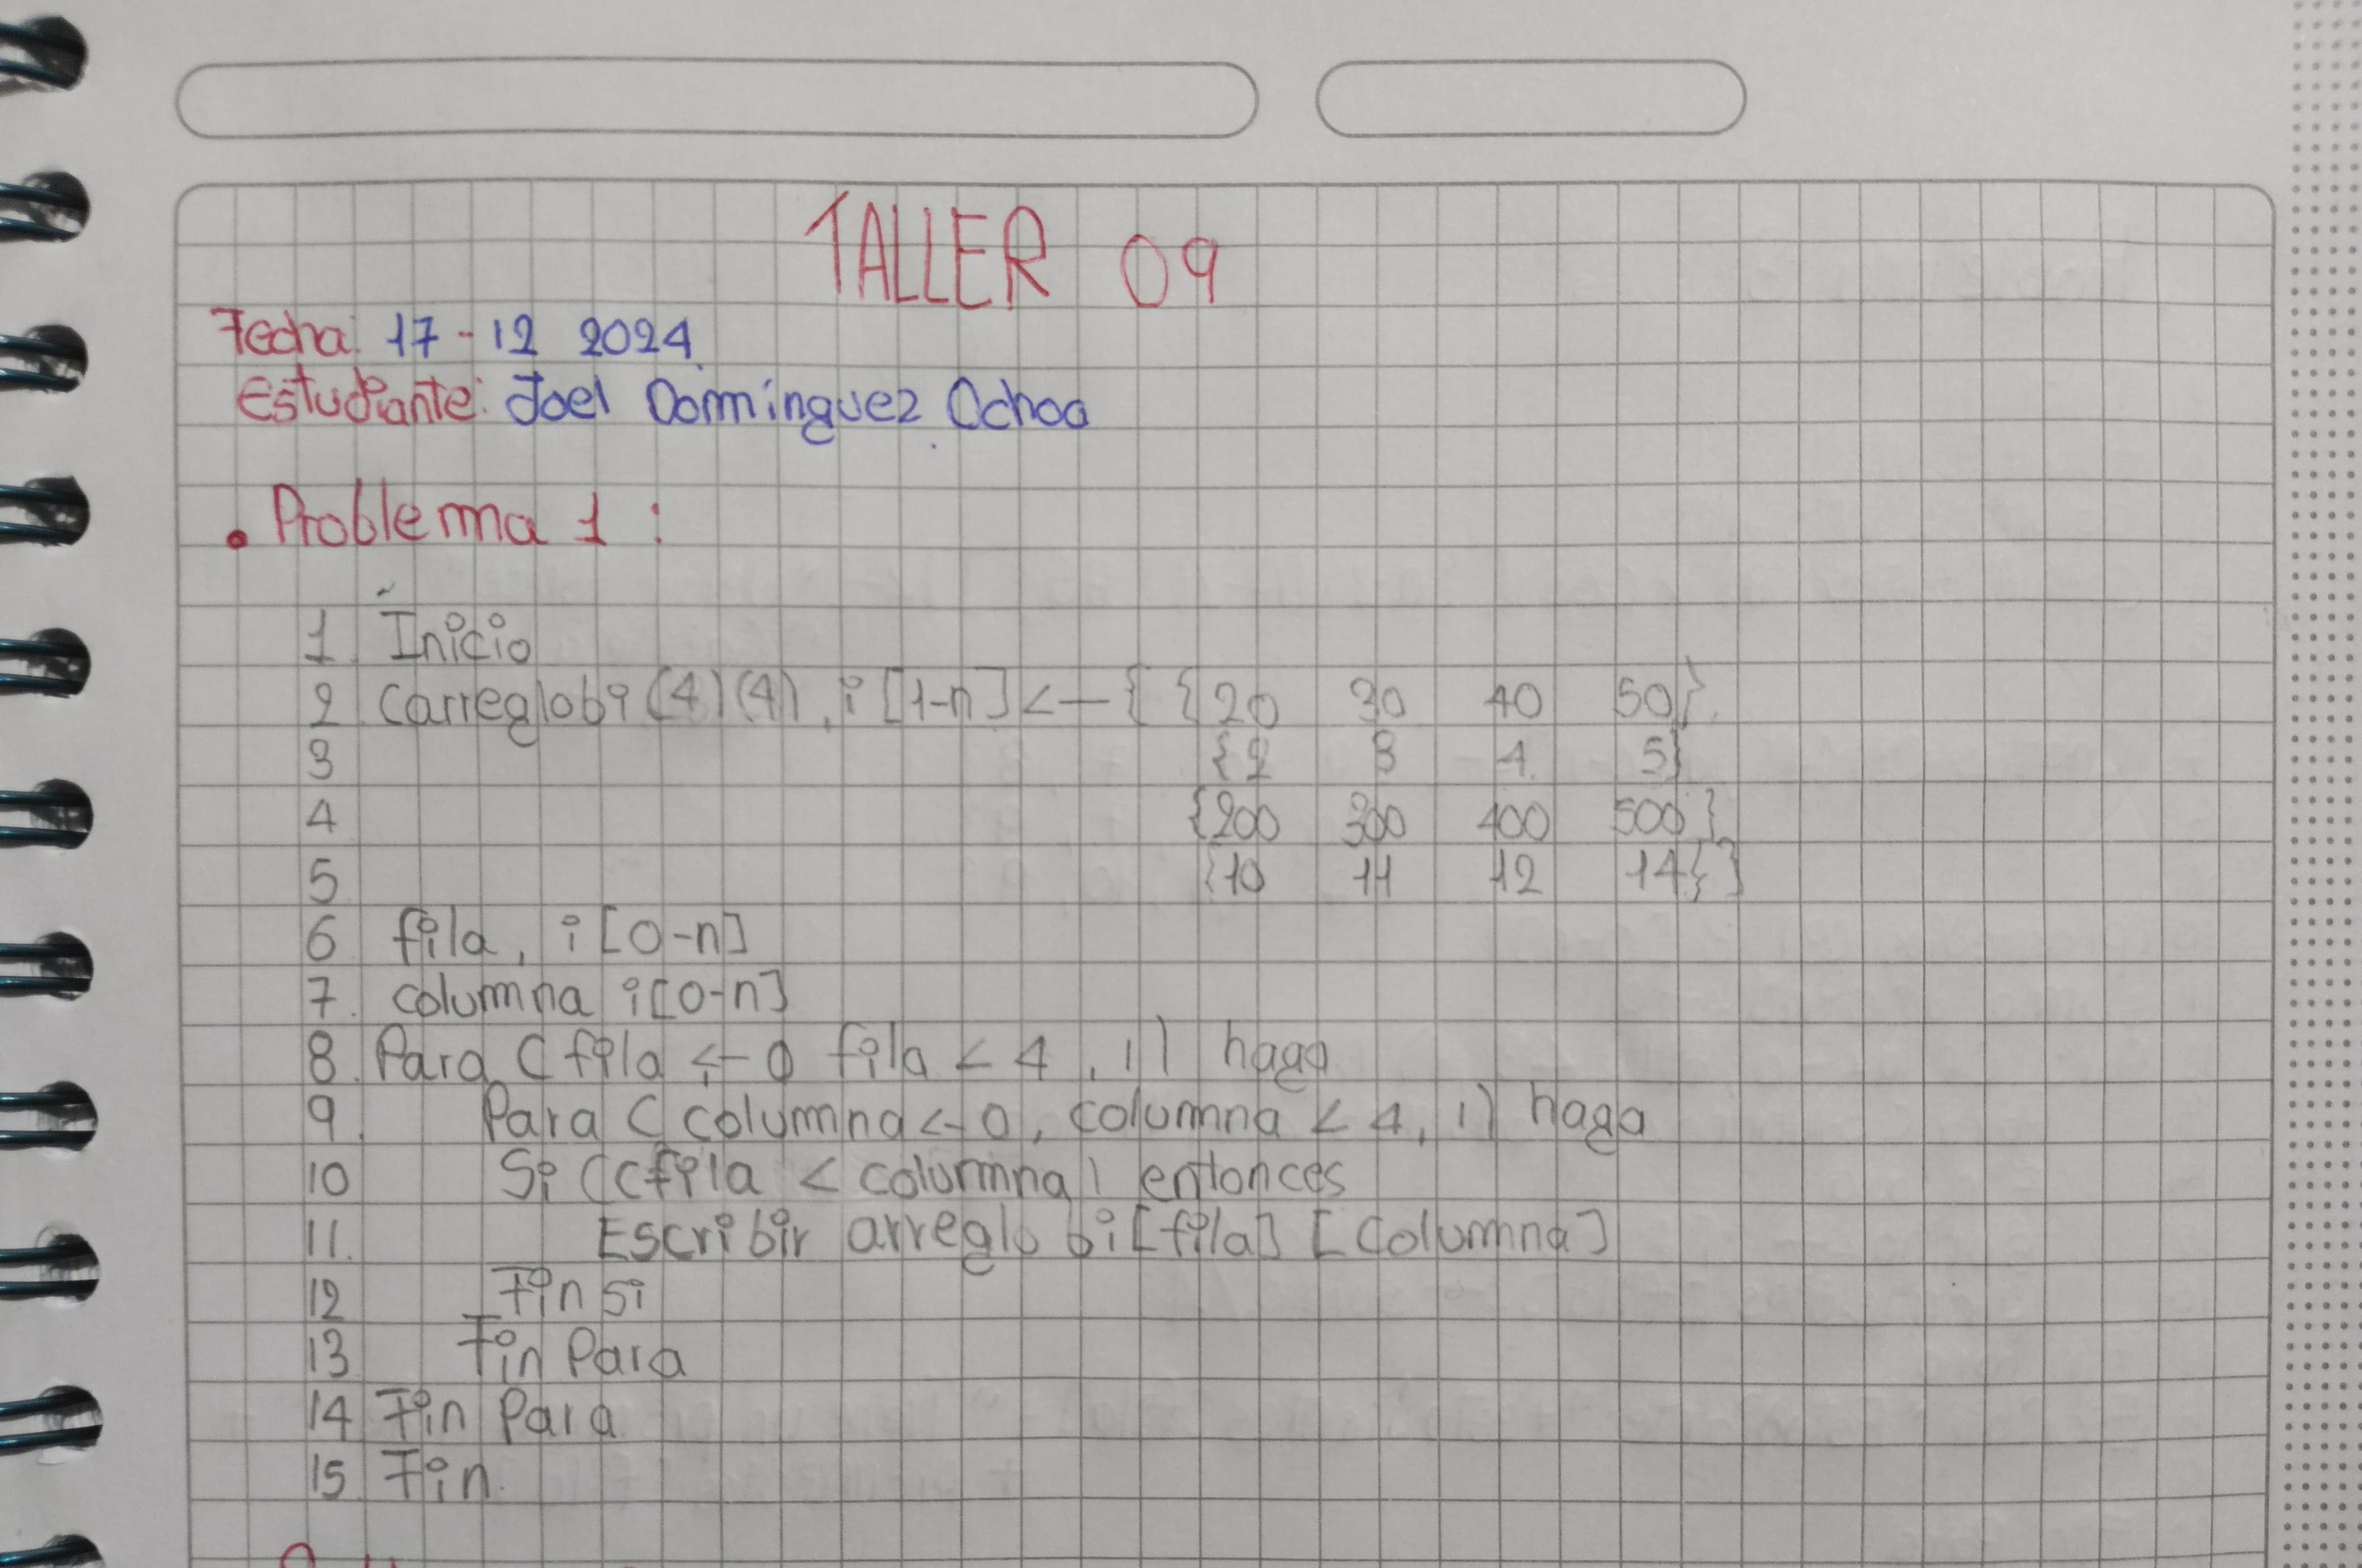 TALLER 09
Fecha: 17-12 2024
Estudiante: Joel Domínguez Ochoa
• Problema 1 :
1. Inicio
2. Carreglobi (4)(4), i [1-n] <— { {20 30 40 50}
3 {2 3 4 5}
4 {200 300 400 500}
5 {10 11 12 14} }
6 fila, i [0-n]
7. columna i[0-n]
8. Para (fila <- 0 fila < 4, 1) haga
9. Para (columna <- 0, columna < 4, 1) haga
10 Si ((fila < columna) entonces
11. Escribir arreglo bi[fila] [Columna]
12 Fin si
13 Fin Para
14 Fin Para
15 Fin.